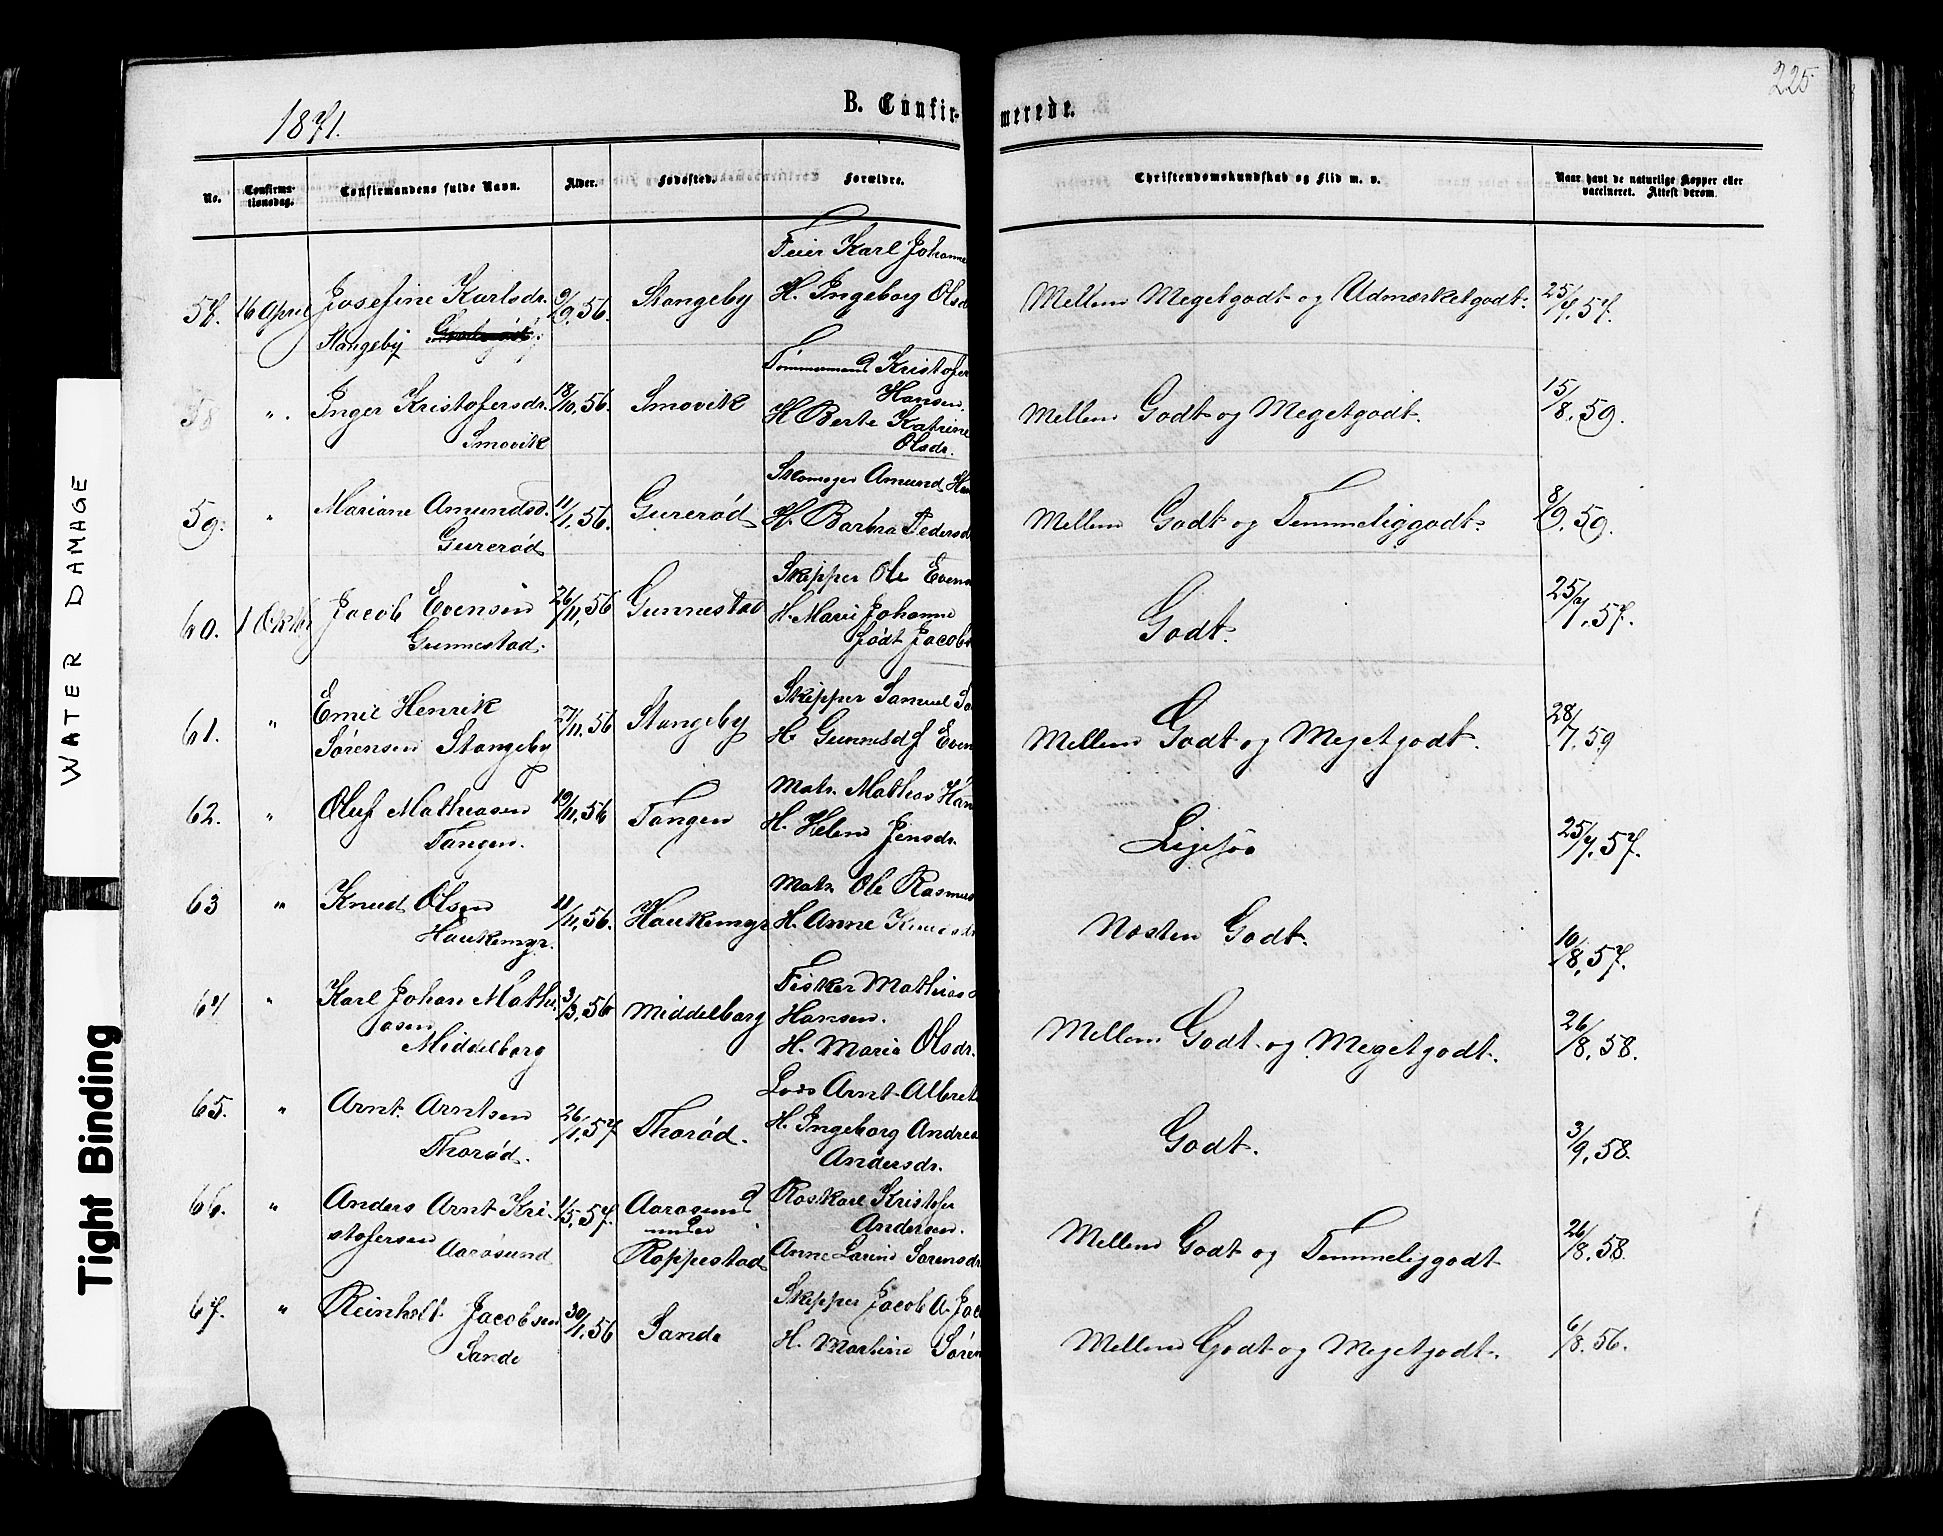 225
1871.
B. Confir-
merede.
No.
Confirma-
tionsdag.
Confirmandens fulde Navn.
Alder.
Fødested.
Forældre.
Christendomskundskab og Flid m. v.
Naar havt de naturlige Kopper eller
vaccineret. Attest derom.
57. 16 April Josefine Karlsdr. 9/9, 56. Stangeby
Stangeby
Feier Karl Johanne
H. Ingeborg Olsd
Mellem Megetgodt og Udmærketgodt. 25/7, 57.
58 ". Inger Kristofersdr. 18/10, 56. Smovik
Smovik
Tømmermand Kristofer
Hansen.
H Berte Katrine
Olsdr.
Mellem Godt og Megetgodt. 15/8. 59.
59. " Mariane Amundsd. 11/1, 56. Gurerød
Gurerød
Amund
H. Barbra Pedersd
Mellem Godt og Temmeliggodt. 8/9. 59.
60. 1 Oktb Jacob Evensen 26/11, 56 Gunnestad
Gunnestad.
Skipper Ole Evens
H. Marie Johanne
født Jacobs
Godt. 25/7, 57.
61. " Emil Henrik 27/11, 56 Stangeby
Sørensen Stangeby
Skipper Samuel
H Even
Mellem Godt og Megetgodt. 28/7, 59
62. " Oluf Mathiasen 19/11, 56 Tangen
Tangen.
Matr. Mathias Han
H. Helene Jensdr.
Ligesaa 25/7, 57.
63 " Knud Olsen 11/11, 56. Haukemyr
Haukemyr.
Matr. Ole Rasmus
H. Anne Knudsdr
Næsten Godt. 10/8, 57.
64 " Karl Johan Mathi 3/3, 56 Middelborg
asen
Middelborg
Fisker Mathias
Hansen.
H. Marie Olsdr.
Mellem Godt og Megetgodt. 26/8, 58.
65. " Arnt Arntsen 26/1, 57 Thorød.
Thorød.
Lods Arnt Albret
H. Ingeborg Andrea
Andersdr.
Godt. 3/9, 58.
66. " Anders Arnt Kri- 1/5, 57. Aarøsund
stofersen Aarøsund
under
Roppestad
Røskarl Kristofer
Andersen.
Anne Lovise Sørensdr
Mellem Godt og Temmeliggodt 26/8. 58.
67. " Reinholt Jacobsen 30/1, 56 Sande
Sande
Skipper Jacob A. Jac
H. Martine Søren
Mellem Godt og Megetgodt. 6/8. 56.
WATER DAMAGE
Tight Binding